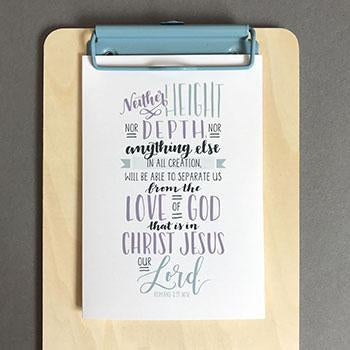 Neither HEIGHT
NOR DEPTH NOR
anything else
IN ALL CREATION,
WILL BE ABLE TO SEPARATE US
from the
LOVE OF GOD
that is in
CHRIST JESUS
OUR
Lord.
ROMANS 8:39 NIV